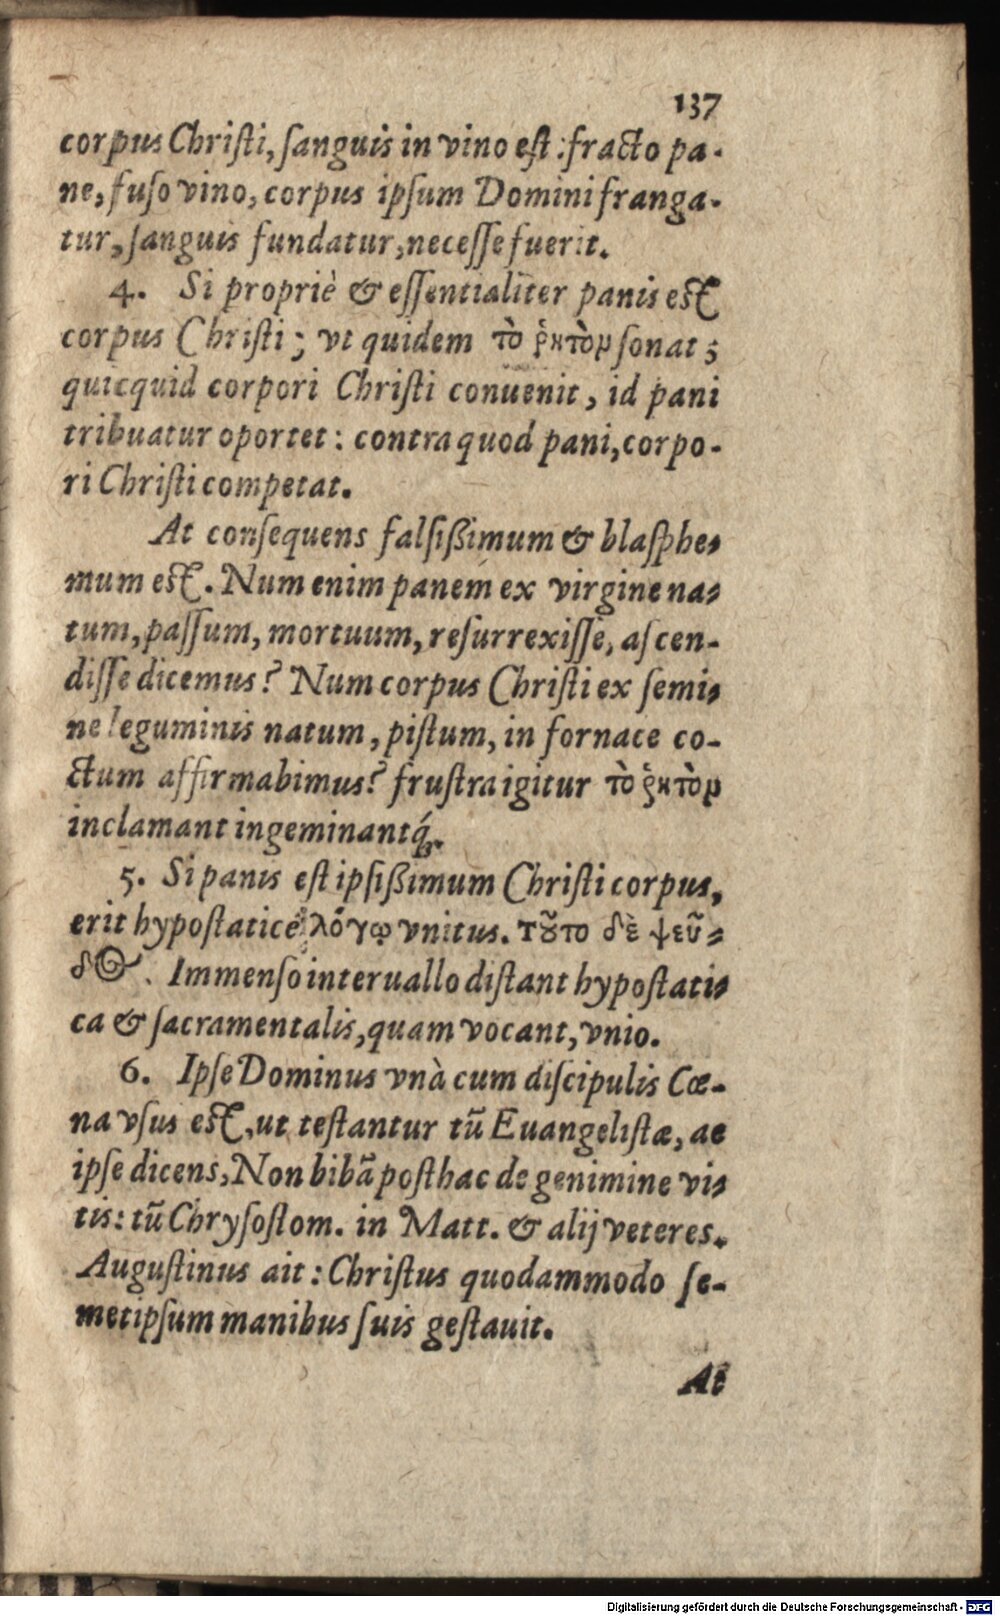 137
corpus Christi, ſanguis in vino eſt : fracto pa-
ne, fuſo vino, corpus ipſum Domini franga-
tur, ſanguis fundatur, neceſſe fuerit.
4. Si propriè & eſſentialiter panis eſt
corpus Christi; vt quidem τὸ ῥητὸμ ſonat;
quicquid corpori Chriſti conuenit, id pani
tribuatur oportet: contra quod pani, corpo-
ri Chriſti competat.
At conſequens falſiſſimum & blaſphe-
mum eſt. Num enim panem ex virgine na-
tum, paſſum, mortuum, reſurrexiſſe, aſcen-
diſſe dicemus? Num corpus Chriſti ex ſemi-
ne leguminis natum, piſtum, in fornace co-
ctum affirmabimus? fruſtra igitur τὸ ῥητὸμ
inclamant ingeminantq́;.
5. Si panis eſt ipſiſſimum Chriſti corpus,
erit hypoſtaticè λόγῳ vnitus. τȣ͂το δὲ ψεῦ-
δος. Immenſo interuallo diſtant hypoſtati-
ca & ſacramentalis, quam vocant, vnio.
6. Ipſe Dominus vnà cum diſcipulis Cœ-
na vſus eſt, ut teſtantur tū Euangeliſtæ, ac
ipſe dicens, Non bibā poſthac de genimine vi-
tis: tū Chryſoſtom. in Matt. & alij veteres.
Auguſtinus ait: Chriſtus quodammodo ſe-
metipſum manibus ſuis geſtauit.
At
Digitalisierung gefördert durch die Deutsche Forschungsgemeinschaft - DFG